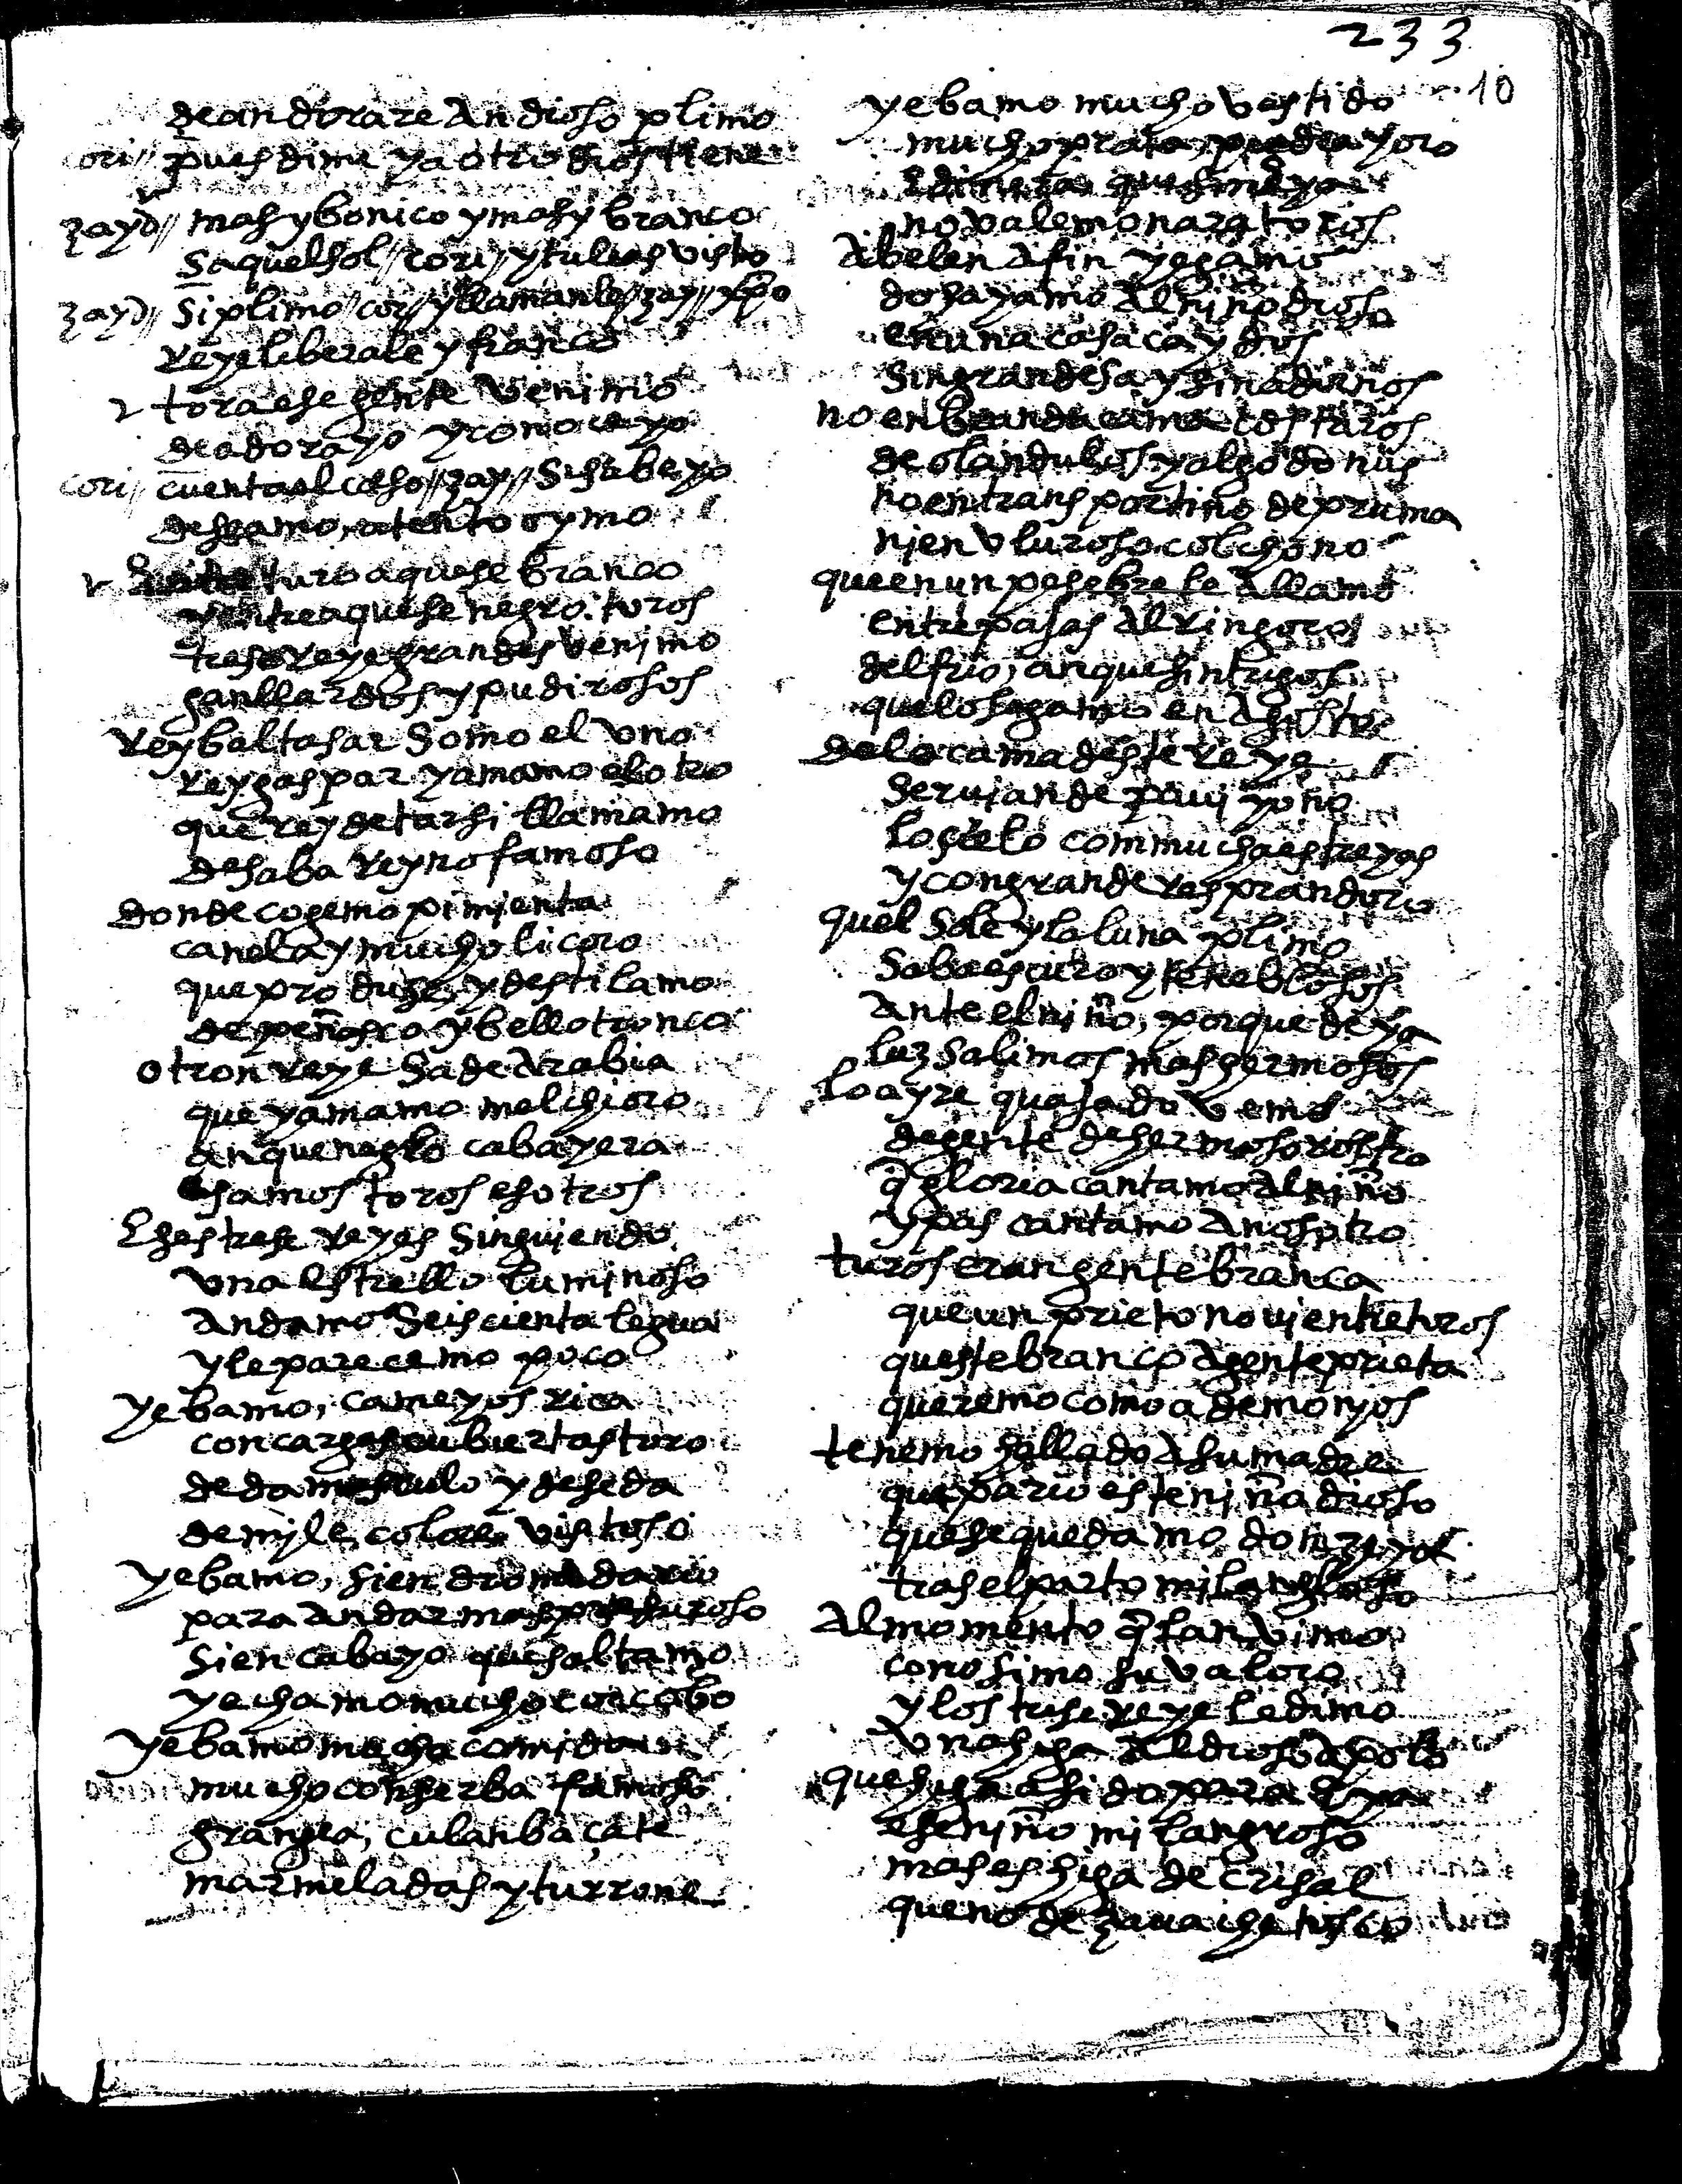 233
10
de andorare An dioso plimo
cori// pues dime ya otro dios tiene
zayd// mas y bonico y mas y branco
sa quel sol // cori // y tu leas visto
zayd// si plimo // cori // y llamanle // zay // xpo
reye liberale y franco
tora ese gente venimo
de adorayo y conoceyo
cori// cuenta el caso // zay // si sabeyo
deseamo, atento oymo
turo aquese branco
y entre aquese negro toros
trese reye grandes venimo
ganllardos y pudirosos
Rey baltasar somo el uno
Rey gaspar yamamo el otro
que rey de tarsi llamamo
de saba reyno famoso
donde cogemo pimienta
canela y mucho licoro
que produze, y destilamo
de peñasco y bello tronco
otron reye sa de Arabia
que yamamo melchioro
anque negro cabayera
samos toros esotros
Esos trese reyes singuiendo
una estrello luminoso
andamo seiscienta legua
y le parecemo poco
yebamo, cameyos rica
con cargas cubiertas turo
de damasculo y de seda
de mile colore vistoso
yebamo, sien dromedario
para andar mas presuroso
sien cabayo que saltamo
y echamo mucho corcobo
yebamo mucha comida
mucho conserba famoso
grangea, culanbaçate
marmeladas y turrone
yebamo mucho vestido
mucho prata, piedra y oro
no vale monaratoros
A belen A fin yegamo
do hayamo Al niño dioso
en una casa cay dos
sin grandesa y sin adirños
no en branda cama costaros
de olandulos y algodonus
no en transportino de pruma
ni en vluroso colchono
que en un pesebre le Allamo
entre pajas Al ringoros
del frio, anque sin trigos
que lo segamo en Agosto
de lo cama deste reye
seruian de pauiyono
lo cielo com mucha estreyas
y con grande resprandoro
quel sole y la luna plimo
saba escuro y tenebrosos
Ante el niño, porque de ya
luz salimos mas hermosos
lo ayre quasado vemo
de gente de hermoso rostro
q̃ gloria cantamo Al niño
y pas cantamo A nosotro
turos eran gente branca
que un prieto no vien tre toros
queste branco A gente prieta
queremo como a demonyos
tenemo hallado A su madre
que pario este niña dioso
que se quedamo donzeya
tras el parto milangloso
Al momento q̃ lan vimo
conosimo su valoro
y los trese reye le dimo
una higa Al dioso Apolo
que higa a sido para eya
ese niño milangroso
mas es higa de crisal
que no de zauaiche tosco